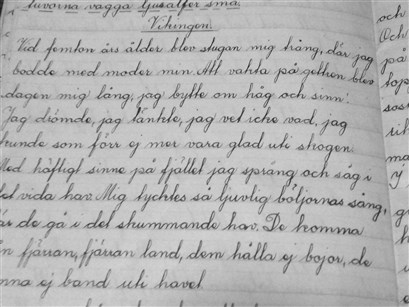 tuvorna vagga ljusalfer små.
Vikingen.
Vid femton års ålder blev stugan mig trång, där jag
bodde med moder min. Att vakta på getten blev
dagen mig lång; jag bytte om håg och sinn.
Jag drömde, jag tänkte, jag vet icke vad, jag
kunde som förr ej mer vara glad uti skogen.
Med häftigt sinne på fjället jag språng, och såg i
det vida hav. Mig tycktes så ljuvlig böljornas sång,
där de gå i det skummande hav. De komma
ån fjärran, fjärran land, dem hålla ej bojor, de
nna ej band uti havet
och
Och
på
top